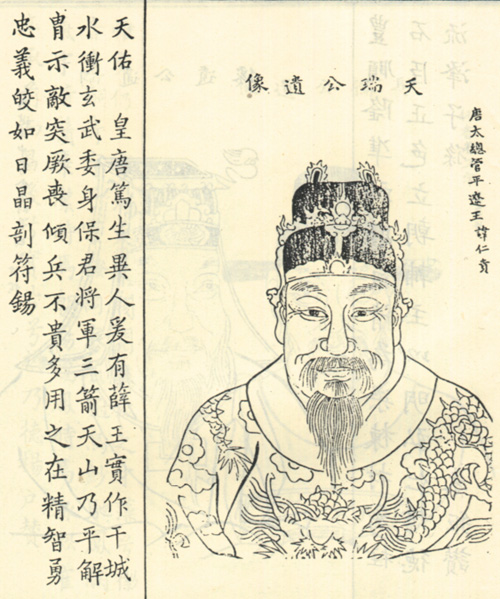 唐太總管平遼王諱仁貴
天瑞公遺像
天佑 皇唐篤生異人爰有薛王實作干城
水衝玄武委身保君將軍三箭天山乃平解
冑示敵突厥喪傾兵不貴多用之在精智勇
忠義皎如日晶剖符錫